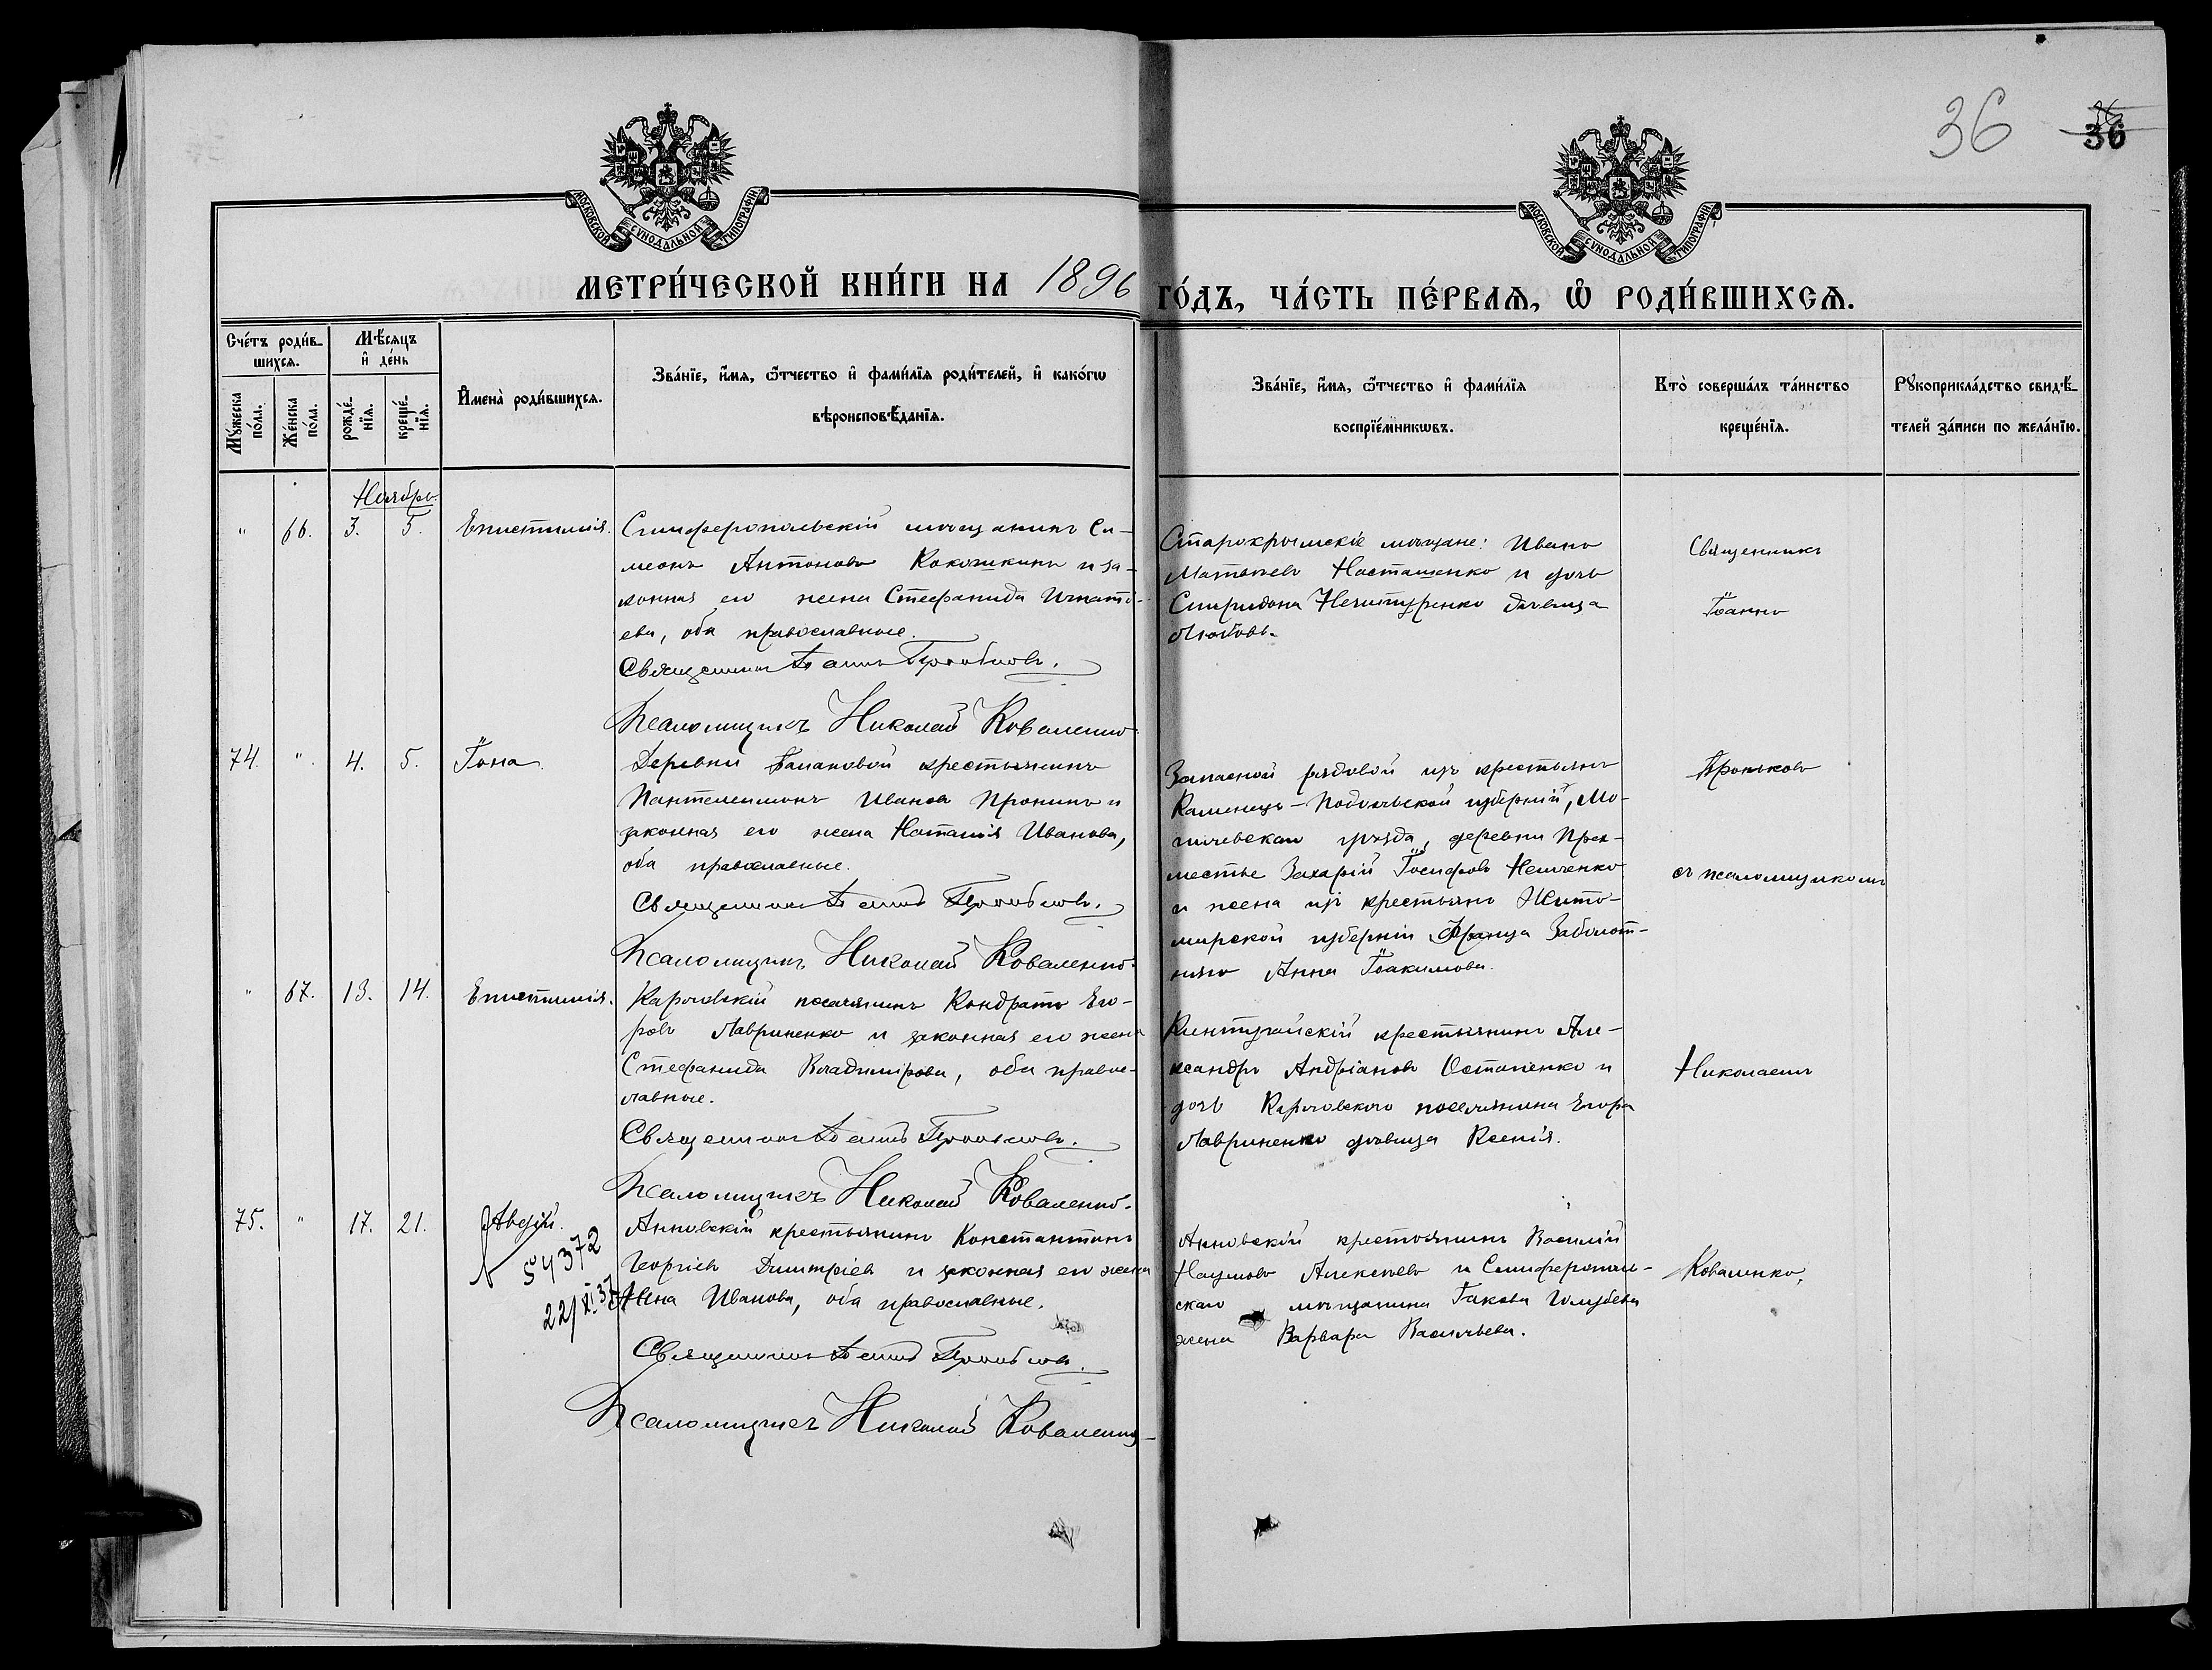 36
36
МОСКОВСКОЙ СѴНОДАЛЬНОЙ ТИПОГРАФІИ
МОСКОВСКОЙ СѴНОДАЛЬНОЙ ТИПОГРАФІИ
МЕТРИ́ЧЕСКОЙ КНИ́ГИ НА 1896 ГО́ДЪ, ЧА́СТЬ ПЕ́РВАЯ, Ѽ РОДИ́ВШИХСЯ.
Сче́тъ роди́в-
шихся.
Мꙋ́жеска по́ла.
Же́нска по́ла.
Мѣ́сяцъ
и҆ де́нь
рожде́-
нїя.
креще́-
нїя.
И҆мена̀ роди́вшихся.
Зва́нїе, и҆́мя, ѻ҆́тчество и҆ фами́лїя роди́телей, и҆ како́гѡ
вѣроисповѣ́данїя.
Зва́нїе, и҆́мя, ѻ҆́тчество и҆ фами́лїя
воспрїе́мникѡвъ.
Кто̀ соверша́лъ та́инство
креще́нїя.
Рꙋкоприкла́дство свидѣ́-
телей за́писи по жела́нїю.
Ноябрь.
" 66. 3. 5. Епистимія.
Симферопольскій мѣщанинъ Си-
меонъ Антоновъ Кокошкинъ и за-
конная его жена Стефанида Игнать-
ева, оба православные.
Священникъ Іоаннъ
Псаломщикъ Николай Коваленко
Старокрымскіе мѣщане: Иванъ
Матвѣевъ Насташенко и дочь
Спиридона Нечитуренко дѣвица
Любовь.
Священникъ
Іоаннъ
74. " 4. 5. Іона.
Деревни крестьянинъ
Пантелеимонъ Ивановъ Пронинъ и
законная его жена Наталія Иванова,
оба православные.
Священникъ Іоаннъ
Псаломщикъ Николай Коваленко.
Запасной рядовой изъ крестьянъ
Каменецъ-Подольской губерніи, Мо-
гилевскаго уѣзда, деревни
Захарій Іосифовъ
и жена изъ крестьянъ Жито-
мирской губерніи Франца Заболот-
няго Анна Іоакимова.
съ псаломщикомъ
" 67. 13. 14. Епистимія.
Карловскій поселянинъ Кондратъ Его-
ровъ Лавриненко и законная его жена
Стефанида Владимірова, оба право-
славные.
Священникъ Іоаннъ
Псаломщикъ Николай Коваленко.
крестьянинъ Але-
ксандръ Андріановъ Остапенко и
дочь Карловскаго поселянина Егора
Лавриненко дѣвица Ксенія.
Николаемъ
75. " 17. 21. Авдій.
54372
22/XI 37
Анновскій крестьянинъ Константинъ
Георгіевъ Димитріевъ и законная его жена
Анна Иванова, оба православные.
Священникъ Іоаннъ
Псаломщикъ Николай Коваленко
Анновскій крестьянинъ Василій
Наумовъ Алексѣевъ и Симферополь-
скаго мѣщанина Іакова Голубева
жена Варвара Васильева.
Коваленко.